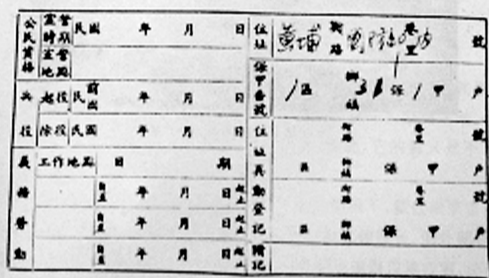 公民資格 宣誓時期 民國 年 月 日
宣誓地點
兵役 起役 民前國 年 月 日
除役 民國 年 月 日
義務勞動 工作地點 日 期
自至 年 月 日 起止
自至 年 月 日 起止
自至 年 月 日 起止
住址 黃埔 街路 巷里 號
保甲番號 1 區 鄉鎮 31 保 1 甲 户
住址異動登記 街路 巷里 號
區 鄉鎮 保 甲 户
街路 巷里 號
區 鄉鎮 保 甲 户
附記